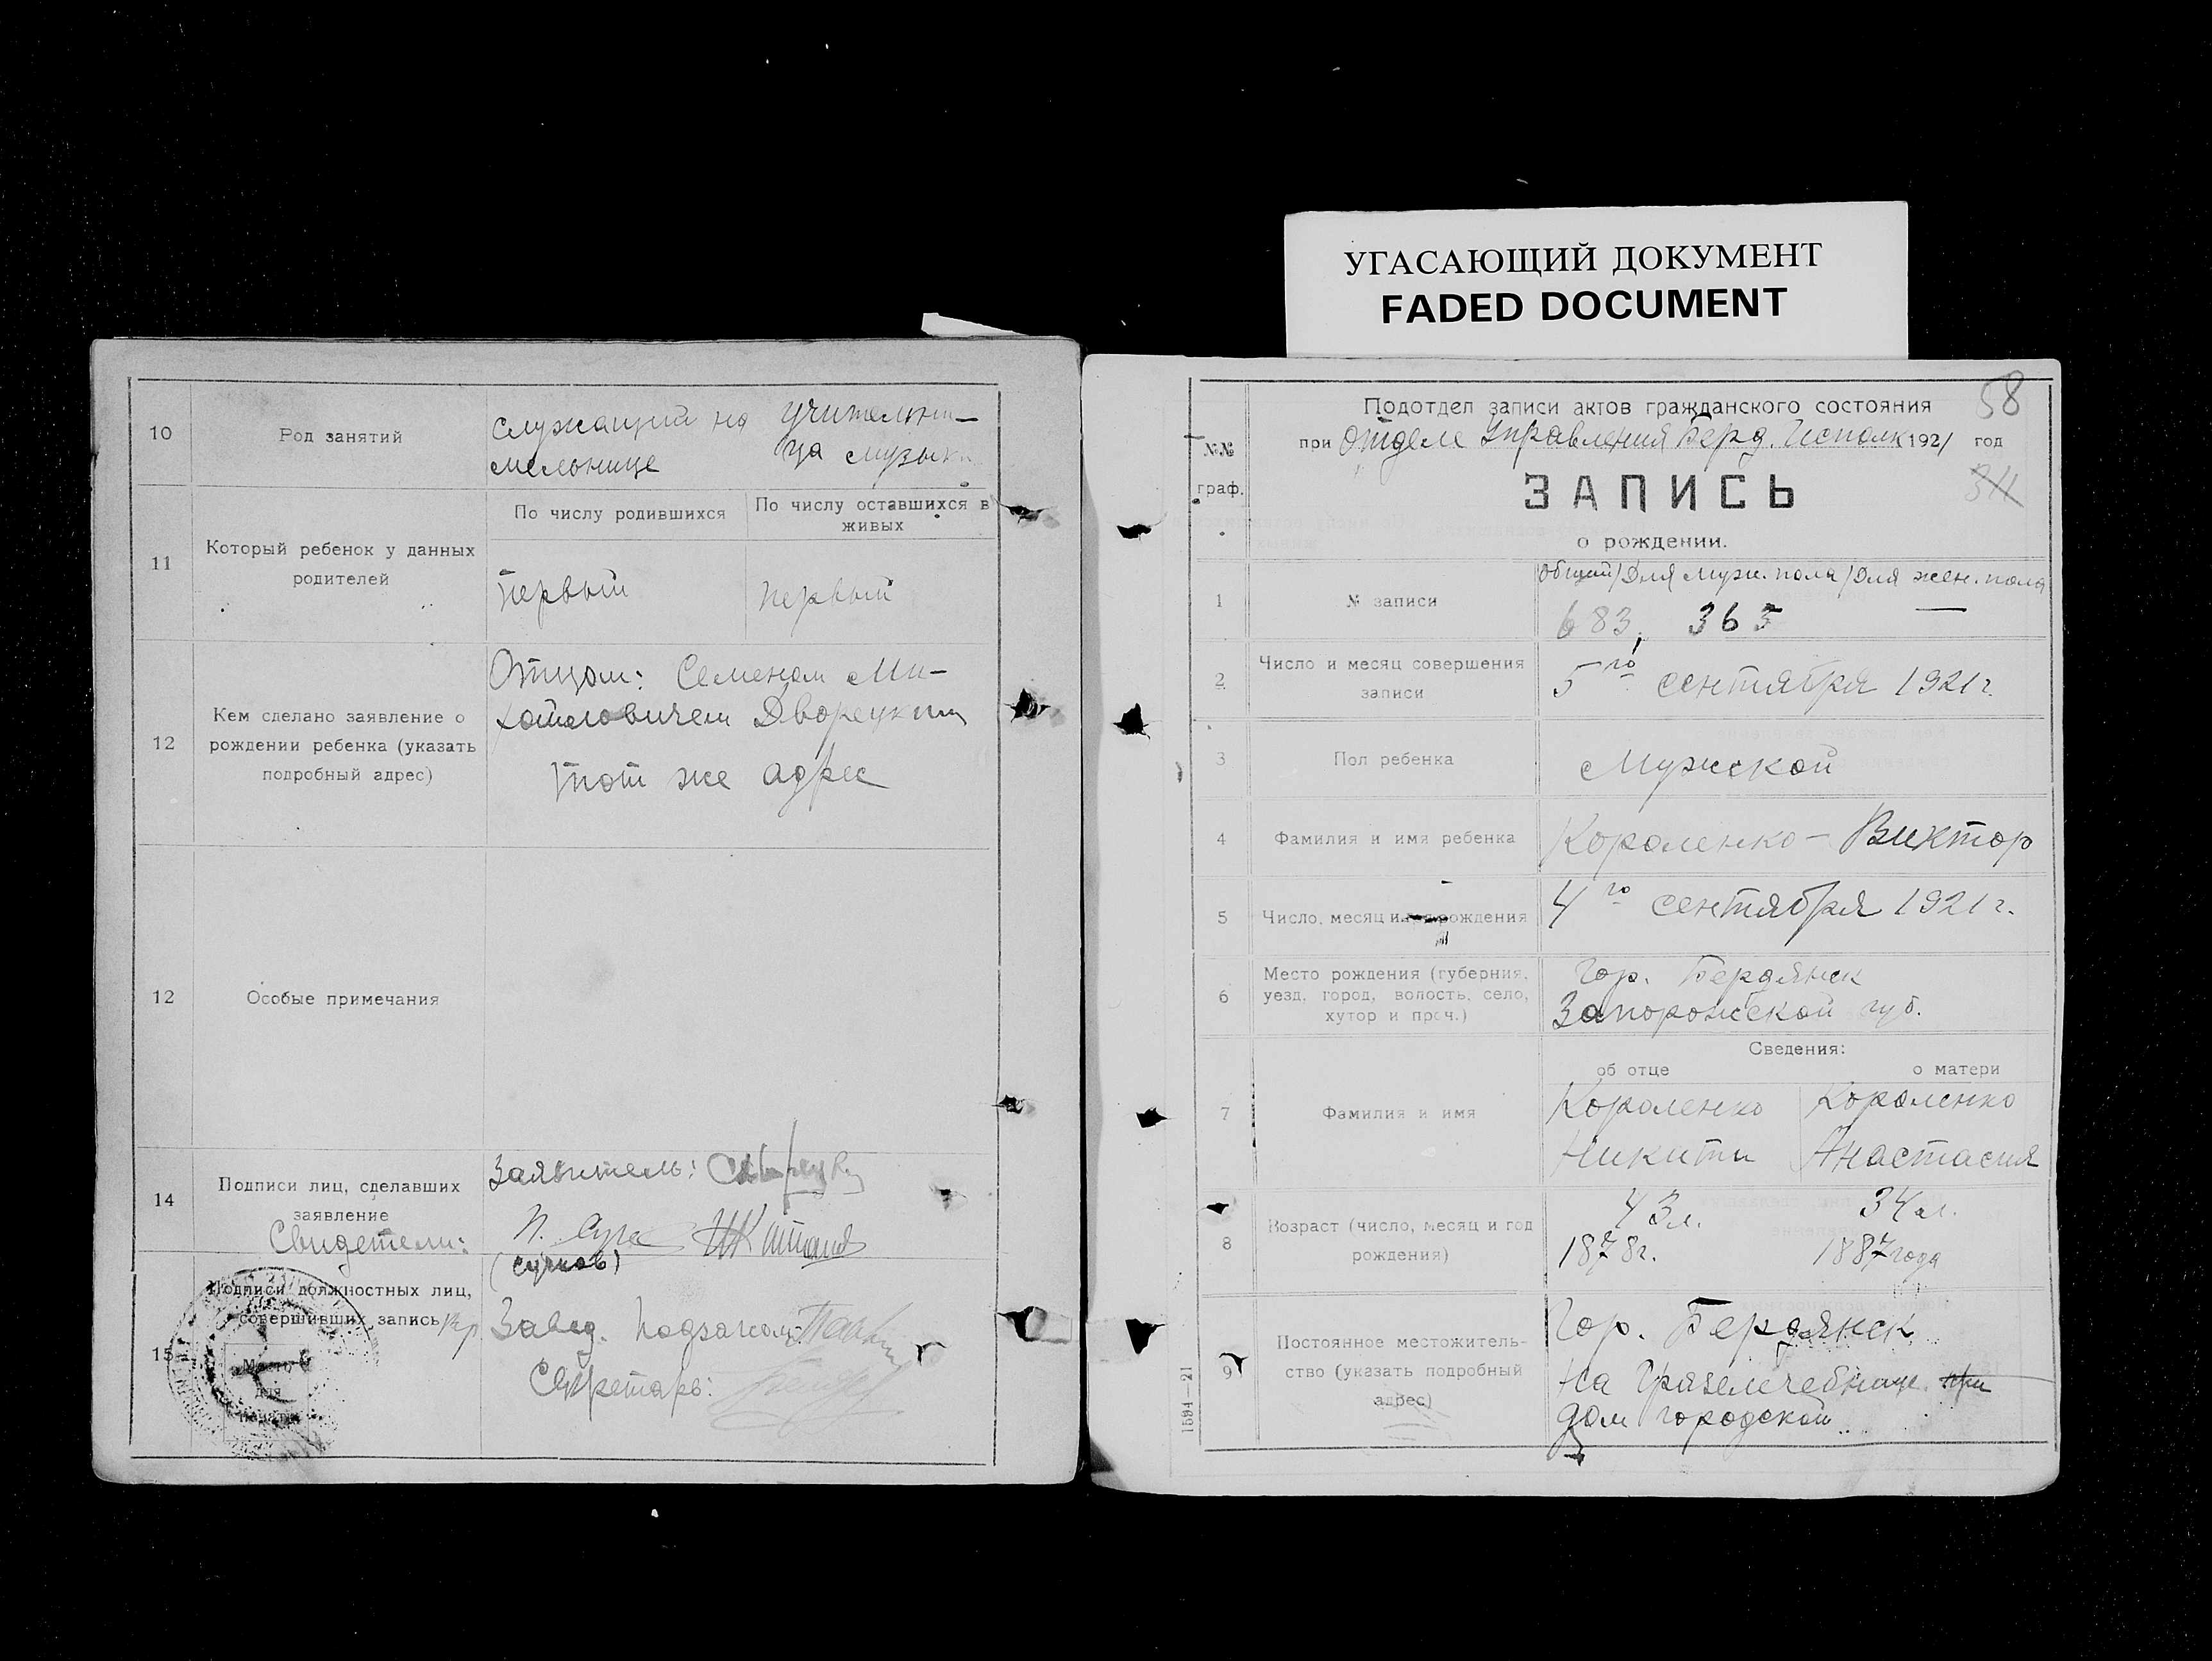 УГАСАЮЩИЙ ДОКУМЕНТ
FADED DOCUMENT
10
Род занятий
служащий на
мельнице
учительни-
ца музыки
11
Который ребенок у данных
родителей
По числу родившихся
По числу оставшихся в
живых
первый
первый
12
Кем сделано заявление о
рождении ребенка (указать
подробный адрес)
Отцом: Семеном Ми-
хайловичем Дворецким
тот же адрес
12
Особые примечания
14
Подписи лиц, сделавших
заявление
Свидетели:
Заявитель:
П.
(сучков)
15
Подписи должностных лиц,
совершивших запись
Место
для
печати
Завед. Подзагсом:
Секретарь:
58
Подотдел записи актов гражданского состояния
при Отделе Управления Берд. Исполк 1921 год
314
№№
граф.
ЗАПИСЬ
о рождении.
1
№ записи
Общий/Для муж. пола/Для жен. пола
683, 365 —
2
Число и месяц совершения
записи
5го сентября 1921 г.
3
Пол ребенка
Мужской
4
Фамилия и имя ребенка
Короленко - Виктор
5
Число, месяц и рождения
4го сентября 1921 г.
6
Место рождения (губерния,
уезд, город, волость, село,
хутор и проч.)
Гор. Бердянск
Запорожской губ.
7
Фамилия и имя
Сведения:
об отце
о матери
Короленко
Никита
Короленко
Анастасия
8
Возраст (число, месяц и год
рождения)
43 л.
1878 г.
34 л.
1887 года
9
Постоянное местожитель-
ство (указать подробный
адрес)
Гор. Бердянск
На Грязелечебнице при
дом городской
1594—21